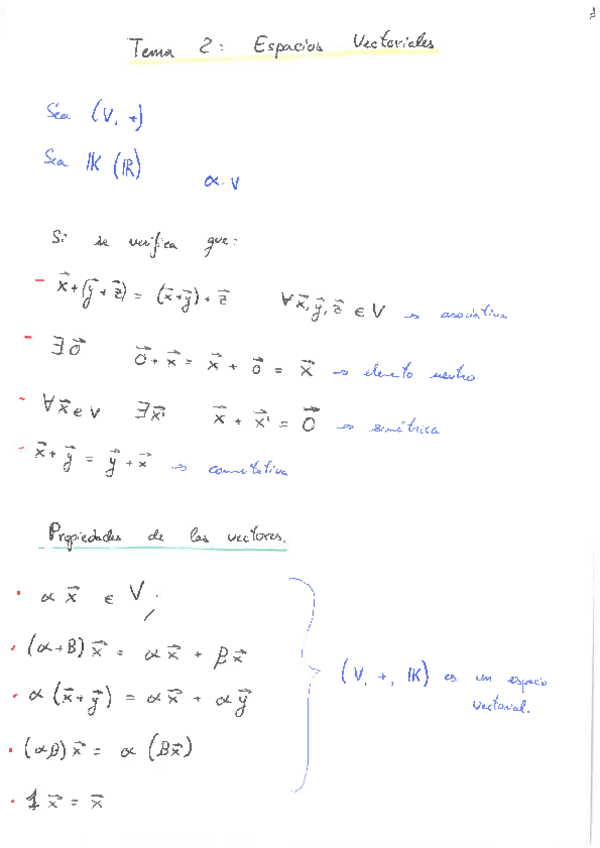 Tema 2: Espacios Vectoriales
Sea (V, +)
Sea IK (IR)
α·V
Si se verifica que:
- x⃗+(y⃗+z⃗) = (x⃗+y⃗)+z⃗ ∀x⃗,y⃗,z⃗ ∈ V → asociativa
- ∃0⃗ 0⃗+x⃗ = x⃗+0⃗ = x⃗ → elemento neutro
- ∀x⃗∈V ∃x⃗' x⃗+x⃗' = 0⃗ → simétrica
- x⃗+y⃗ = y⃗+x⃗ → conmutativa
Propiedades de los vectores.
· αx⃗ ∈ V;
· (α+B)x⃗ = αx⃗ + βx⃗
· α(x⃗+y⃗) = αx⃗ + αy⃗
· (αB)x⃗ = α(Bx⃗)
· 1x⃗ = x⃗
(V, +, IK) es un espacio
vectorial.